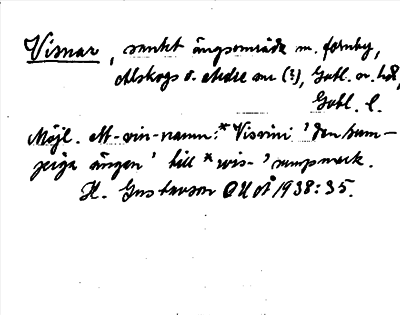 Visnar, sankt ängsområde m. fornby,
Alskogs o. Ardre snr (?), Gotl. ö. hd,
Gotl. l.
Möjl. ett -vin-namn: *Visvini 'den sum-
piga ängen' till *wis- 'sumpmark.
H. Gustavson OUÅ 1938:35.